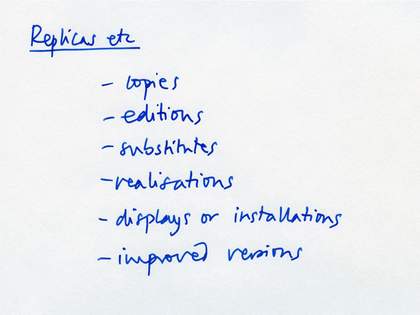 Replicas etc
- copies
- editions
- substitutes
- realisations
- displays or installations
- improved versions